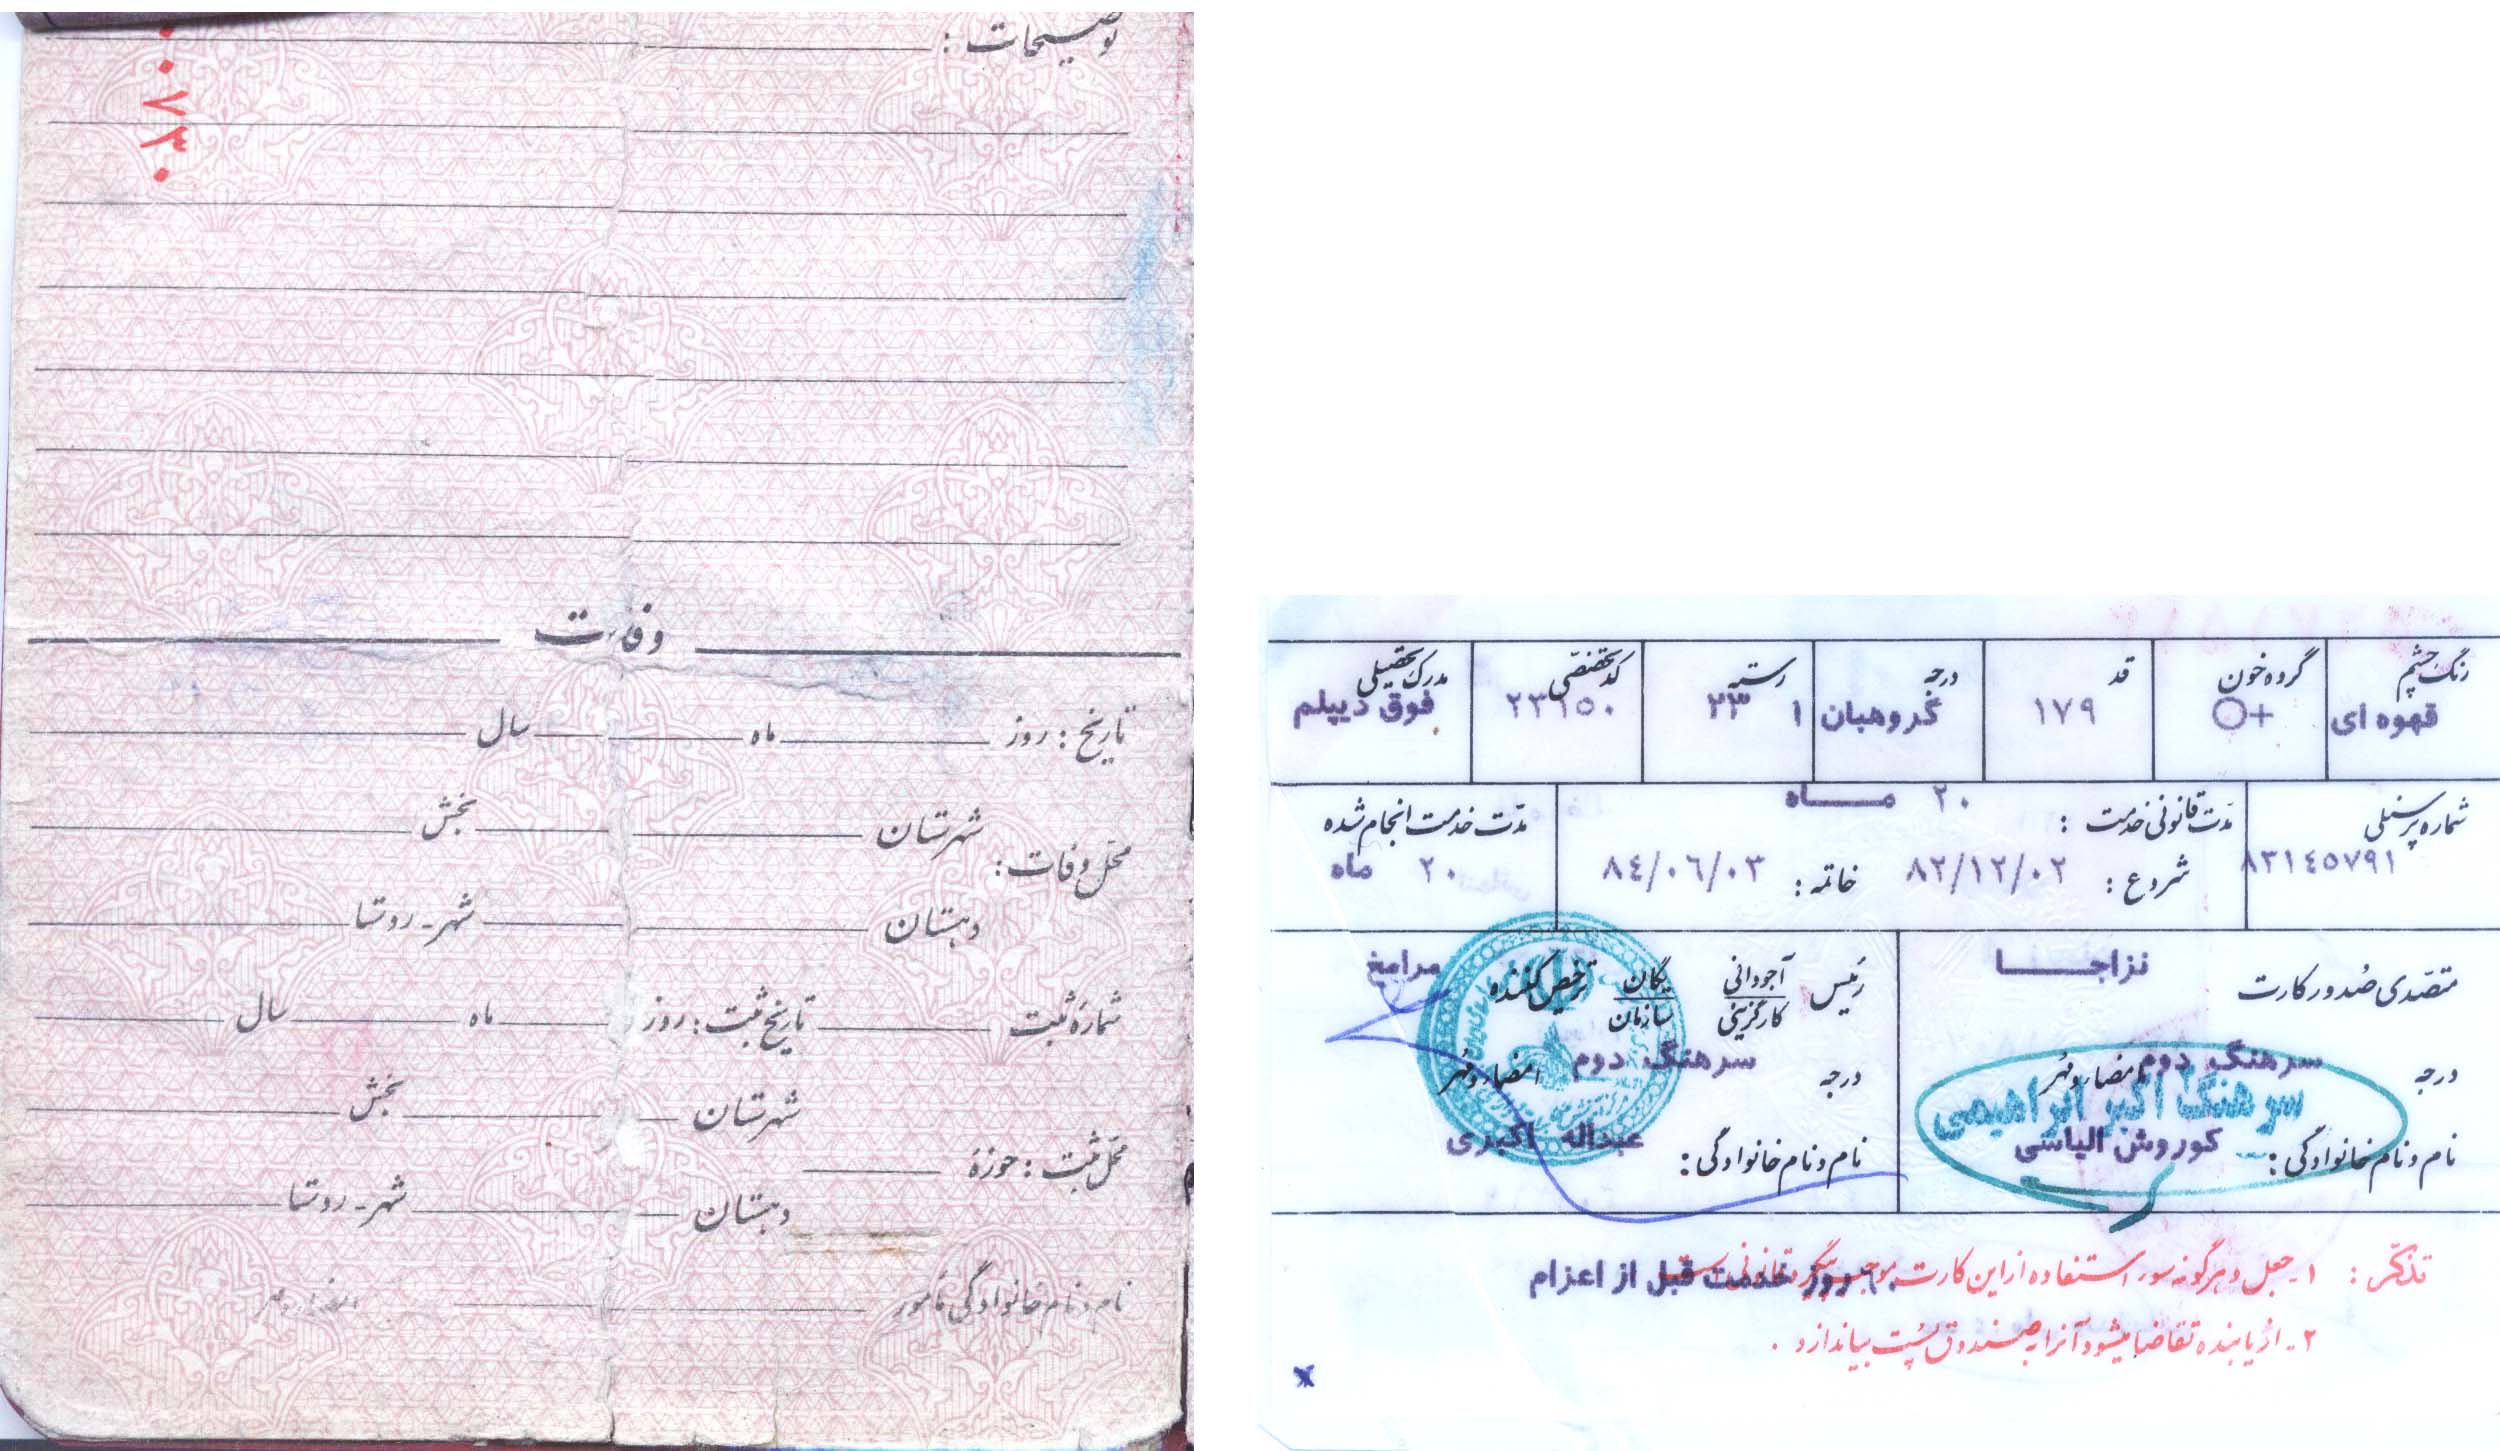 توضیحات :
۰۰۷۳۰
وفات
تاریخ : روز ماه سال
محل وفات : شهرستان بخش
دهستان شهر - روستا
شماره ثبت تاریخ ثبت : روز ماه سال
محل ثبت : حوزه شهرستان بخش
دهستان شهر - روستا
نام و نام خانوادگی مأمور امضاء و مهر
رنگ چشم گروه خون قد درجه رسته کد تخصصی مدرک تحصیلی
قهوه ای O+ ۱۷۹ گروهبان ۱ ۲۳ ۲۳۱۵۰ فوق دیپلم
شماره پرسنلی مدت قانونی خدمت : ۲۰ مــاه مدت خدمت انجام شده
۸۲۱٤۵۷۹۱ شروع : ۸۲/۱۲/۰۲ خاتمه : ۸٤/۰۶/۰۳ ۲۰ ماه
متصدی صدور کارت نزاجــا
درجه سرهنگ دوم امضاء و مهر
سرهنگ اکبر ابراهیمی
نام و نام خانوادگی : کوروش الیاسی
رئیس آجودانی کارگزینی یگان سازمان ترخیص کننده مرامخ
درجه سرهنگ دوم امضاء و مهر
نام و نام خانوادگی : عبداله اکبری
تذکر : ۱ - جعل و هرگونه سوء استفاده از این کارت موجب پیگرد قانونی است
روز خدمت قبل از اعزام
۲ - از یابنده تقاضا میشود آنرا به صندوق پست بیاندازد .
x